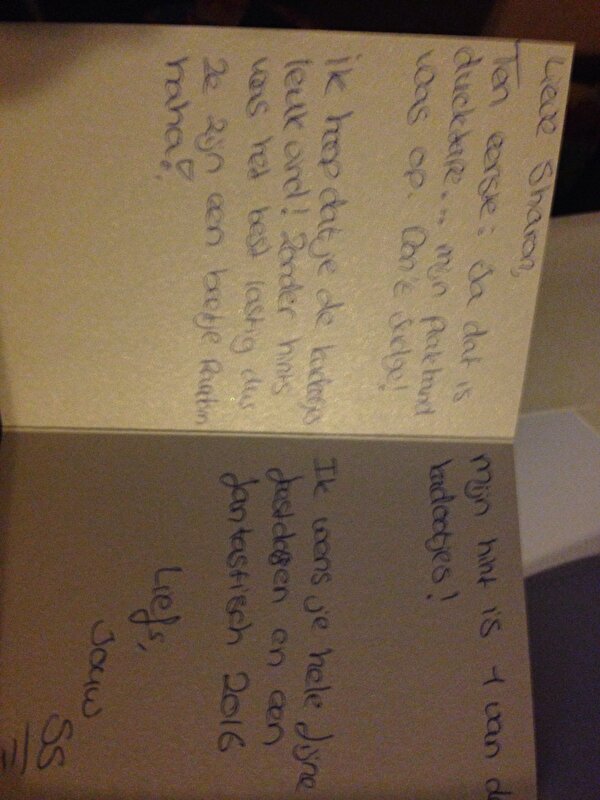 Lieve Sharon,
Ten eerste: Ja dat is
ducktape... mijn plakband
was op. Don't Judge!
Ik hoop dat je de kadootjes
leuk vind! Zonder hints
was het best lastig dus
ze zijn een beetje random
haha
mijn hint is 1 van de
kadootjes!
Ik wens je hele fijne
feestdagen en een
fantastisch 2016
Liefs,
Jouw
SS